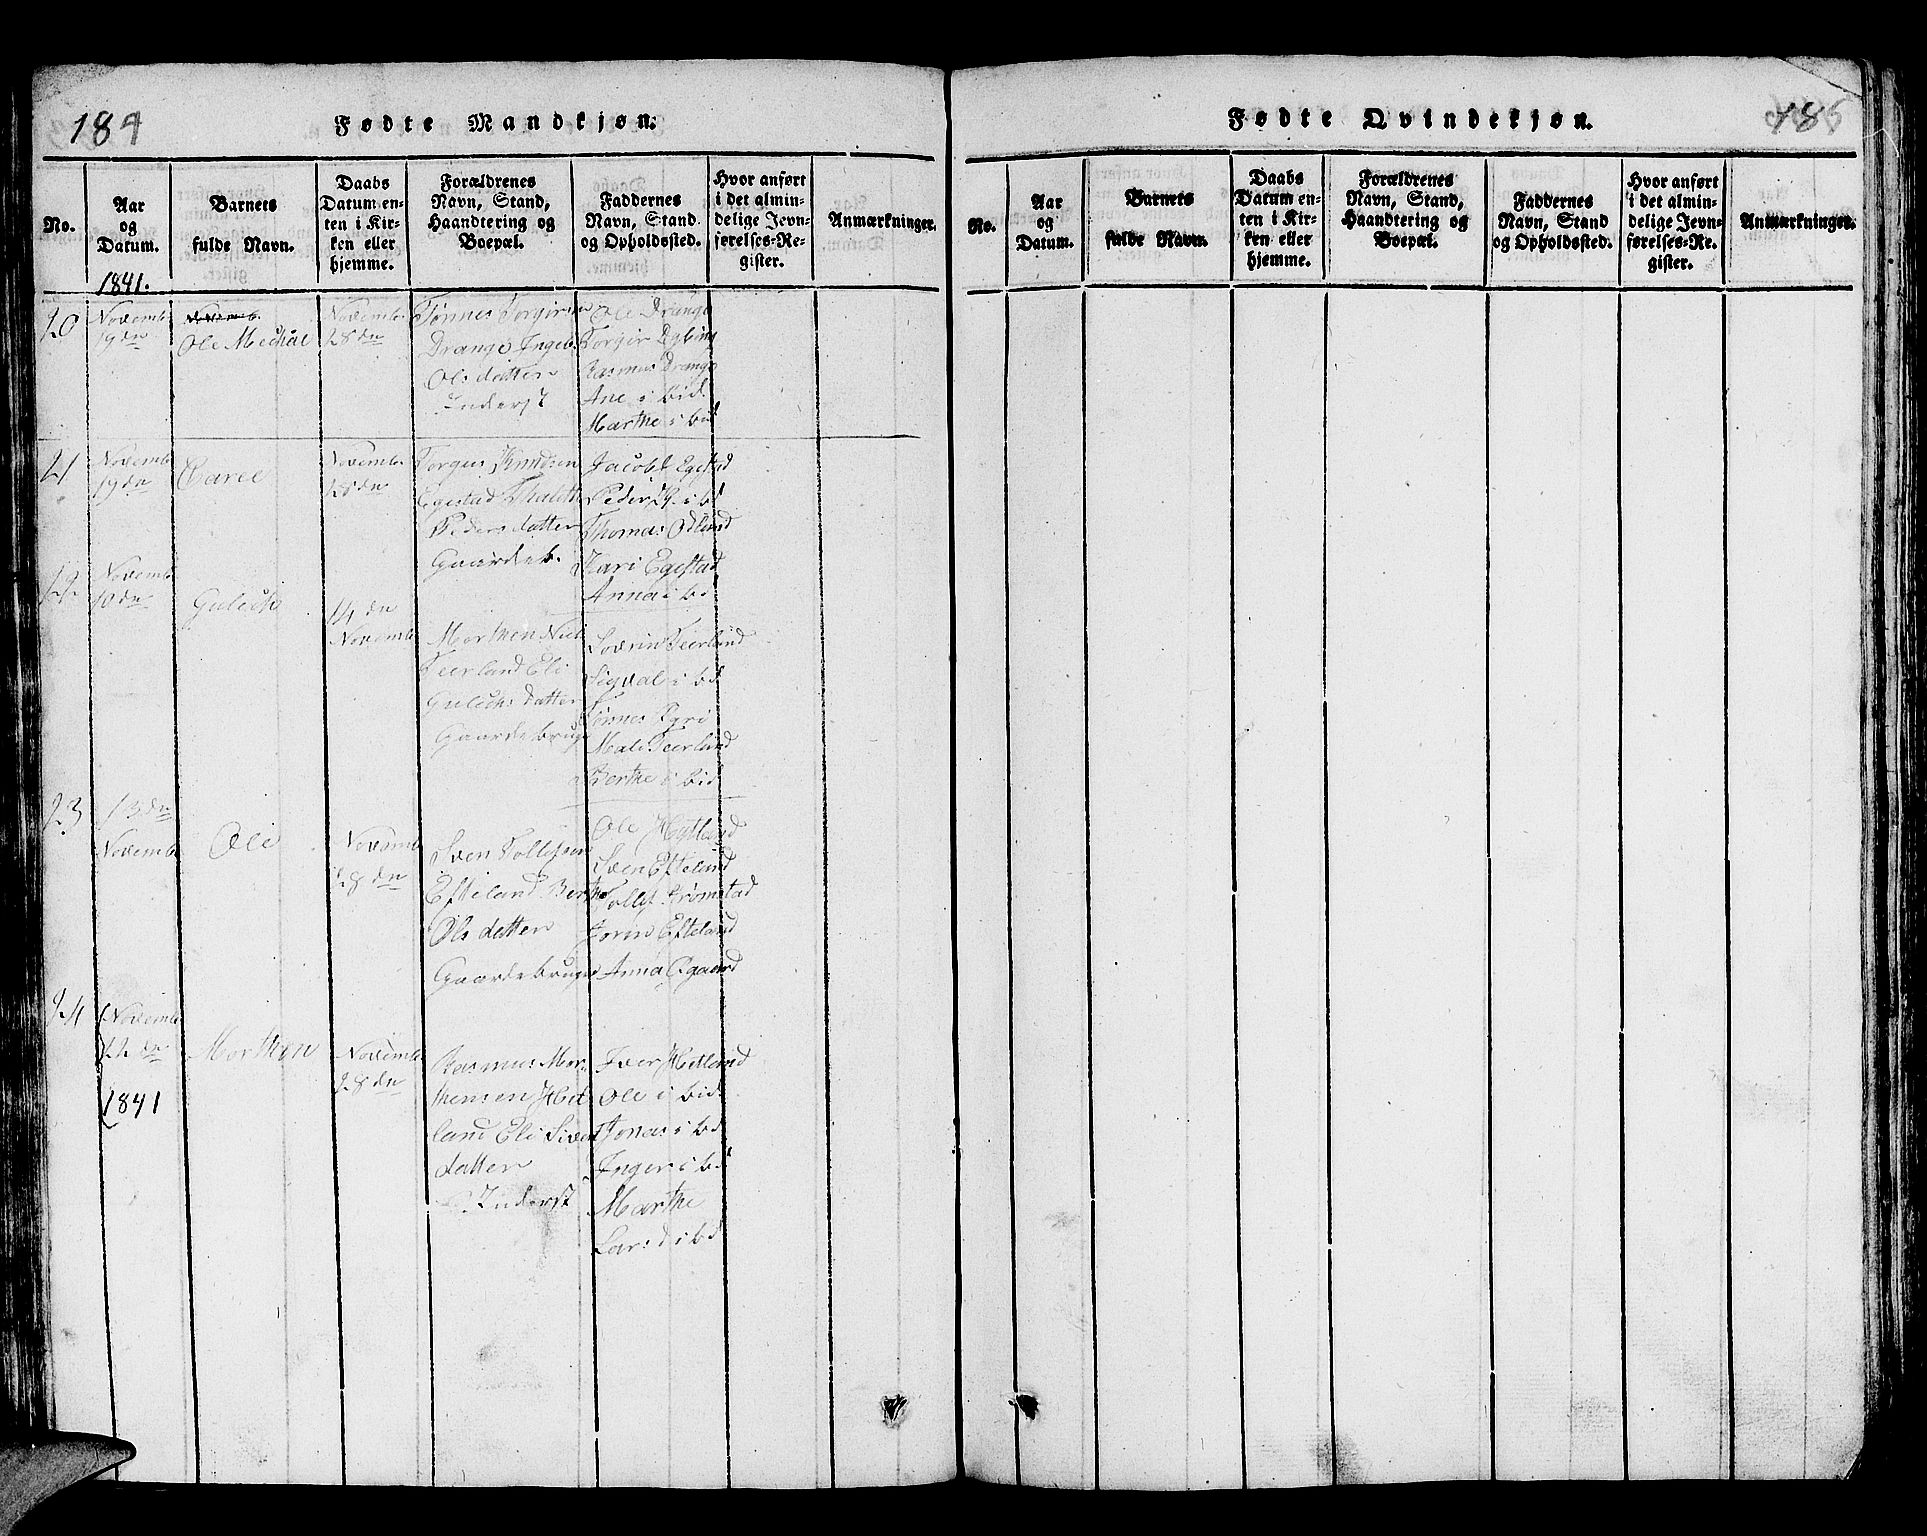 184
Fødte Mandkjøn.
No.
Aar
og
Datum.
Barnets
fulde Navn.
Daabs
Datum en-
ten i Kir-
ken eller
hjemme.
Forældrenes
Navn, Stand,
Haandtering og
Boepæl.
Faddernes
Navn, Stand
og Opholdssted.
Hvor anført
i det almin-
delige Jevn-
førelses-Re-
gister.
Anmærkninger.
1841.
20
Novemb.
19 dn
Ole Mechal
Novemb.
28 dn
Tønnes Torgirsen
Drange Ingeb.
Olsdatter
Inderst
Ole Drange
Torgir Dybing
Rasmus Drange
Ane i bid.
Marthe i bid
21
Novemb.
19 dn
Novemb.
28 dn
Torgus Knudsen
Egestad
Pedersdatter
Gaardeb.
Jacob Egestad
Peder i bd
Thomas Odland
Kari Egestad
Anna i bd
22
Novemb.
10 dn
Gulech
14 dn
Novemb.
Morthen Niel
Teerland Eli
Gulechsdatter
Gaardebruger
Soverin Teerland
Sigval i bd
Tønnes
Mali Teerland
Berthe i bid
23
13 dn
Novemb.
Ole
Novemb.
28 dn
Sven Tollefsen
Efteland Berthe
Olsdatter
Gaardebruger
Ole Hetland
Sven Efteland
Tollef Strømstad
Joren Efteland
Anna Øgaard
24
Novemb.
22 dn
1841
Morthen
Novemb.
28 dn
Rasmus Mor-
thensen Het-
land Eli Siverts
datter
Inderst
Iver Hetland
Ole i bid.
Jonas i bd
Inger i bd
Marthe
Lars i bd
185
Fødte Qvindekjøn.
No.
Aar
og
Datum.
Barnets
fulde Navn.
Daabs
Datum en-
ten i Kir-
ken eller
hjemme.
Forældrenes
Navn, Stand,
Haandtering og
Boepæl.
Faddernes
Navn, Stand
og Opholdssted.
Hvor anført
i det almin-
delige Jevn-
førelses-Re-
gister.
Anmærkninger.